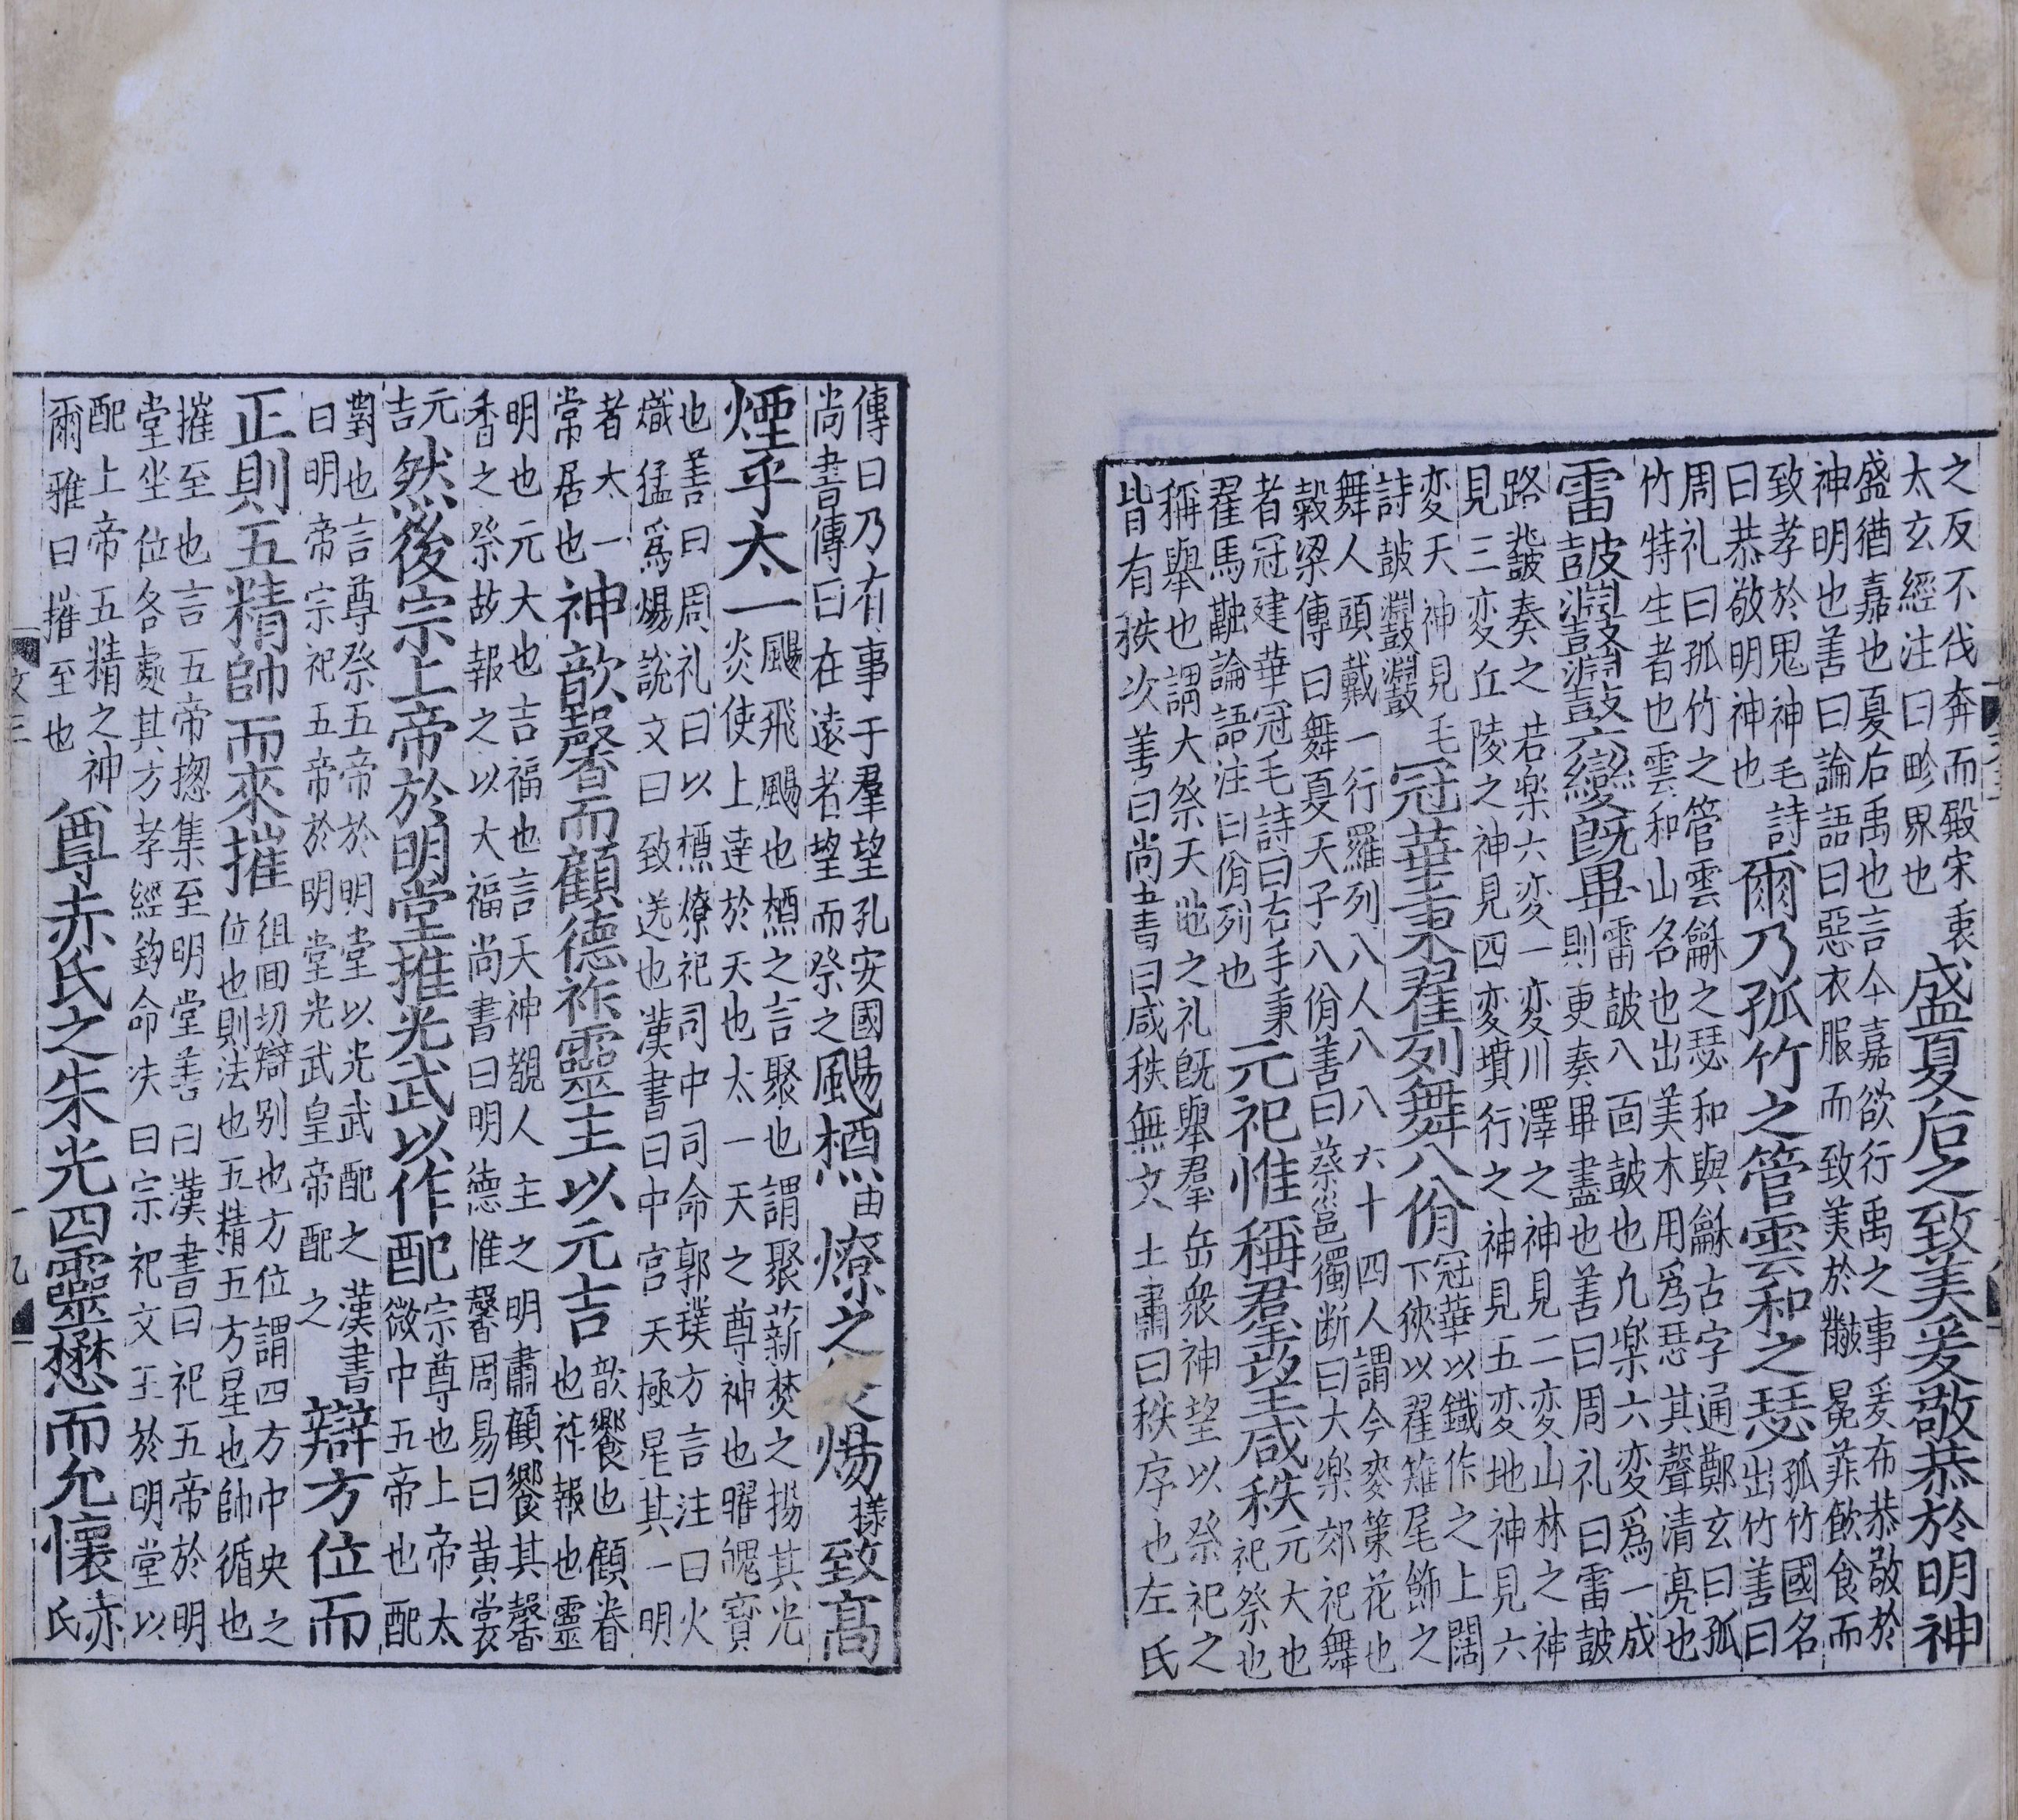 之反不伐奔而殿宋衷
太玄經注曰畛界也
盛夏后之致美爰敬恭於明神
盛猶嘉也夏后禹也言今嘉欲行禹之事爰布恭敬於
神明也善曰論語曰惡衣服而致美於黻冕菲飲食而
致孝於鬼神毛詩
曰恭敬明神也
爾乃孤竹之管雲和之瑟
孤竹國名
出竹善曰
周礼曰孤竹之管雲龢之瑟和與龢古字通鄭玄曰孤
竹特生者也雲和山名也出美木用爲瑟其聲清亮也
雷鼓鼝鼝六變既畢
雷鼓八面鼓也凢楽六変爲一成
則更奏畢盡也善曰周礼曰雷鼓
路鼗奏之若楽六変一変川澤之神見二変山林之神
見三変丘陵之神見四変墳行之神見五変地神見六
変天神見毛
詩鼓鼝鼝
冠華秉翟列舞八佾
冠華以鐵作之上闊
下狹以翟雉尾飾之
舞人頭戴一行羅列八人八八六十四人謂今麥策花也
榖梁傳曰舞夏天子八佾善曰蔡邕獨断曰大楽郊祀舞
者冠建華冠毛詩曰右手秉
翟馬融論語注曰佾列也
元祀惟稱羣望咸秩
元大也
祀祭也
稱舉也謂大祭天地之礼既舉羣岳衆神望以祭祀之
皆有秩次善曰尚書曰咸秩無文王肅曰秩序也左氏
傳曰乃有事于羣望孔安國
尚書傳曰在遠者望而祭之
颺槱
由
燎之炎煬
樣
致高
煙乎太一
颺飛颺也槱之言聚也謂聚薪焚之揚其光
炎使上達於天也太一天之尊神也曜魄寶
也善曰周礼曰以槱燎祀司中司命郭璞方言注曰火
熾猛爲煬說文曰致送也漢書曰中宫天極星其一明
者太一
常居也
神歆馨而顧德祚靈主以元吉
歆饗也顧眷
也祚報也靈
明也元大也吉福也言天神覩人主之明肅顧饗其馨
香之祭故報之以大福尚書曰明德惟馨周易曰黄裳
元
吉
然後宗上帝於明堂推光武以作配
宗尊也上帝太
微中五帝也配
對也言尊祭五帝於明堂以光武配之漢書
曰明帝宗祀五帝於明堂光武皇帝配之
辯方位而
正則五精帥而來摧
徂回切辯别也方位謂四方中央之
位也則法也五精五方星也帥循也
摧至也言五帝揔集至明堂善曰漢書曰祀五帝於明
堂坐位各處其方孝經鉤命决曰宗祀文王於明堂以
配上帝五精之神
爾雅曰摧至也
尊赤氏之朱光四靈懋而允懷
赤
氏
文三
十九